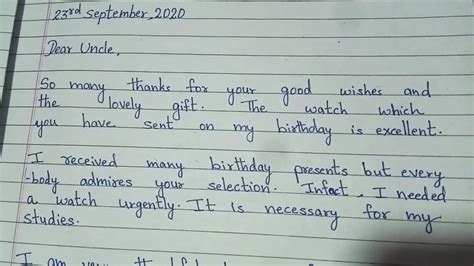 23rd September, 2020
Dear Uncle,
So many thanks for your good wishes and
the lovely gift. The watch which
you have sent on my birthday is excellent.
I received many birthday presents but every
-body admires your selection. Infact, I needed
a watch urgently. It is necessary for my
studies.
I am